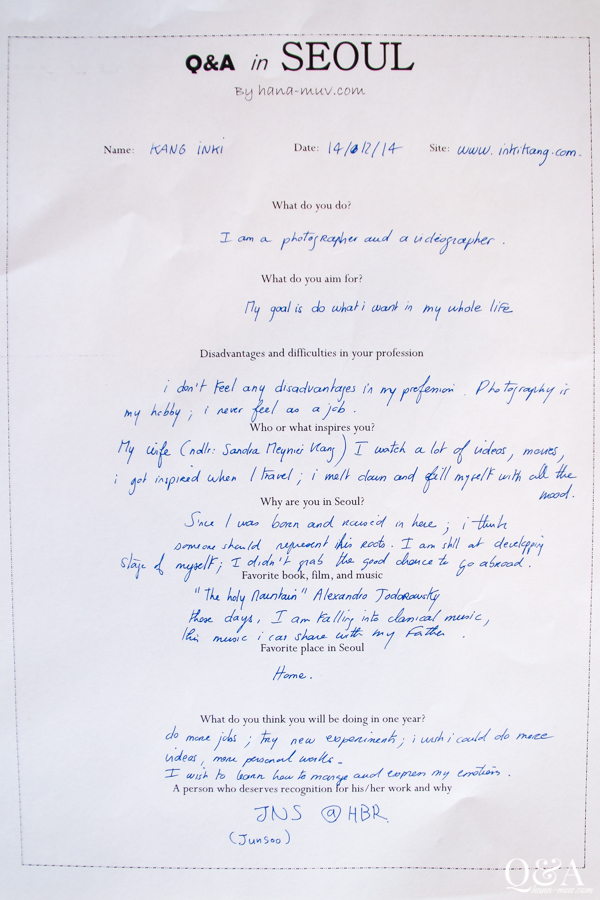 Q&A in SEOUL
By hana-muv.com
Name: KANG INKI Date: 14/12/14 Site: www.inkikang.com.
What do you do?
I am a photographer and a videographer.
What do you aim for?
My goal is do what i want in my whole life
Disadvantages and difficulties in your profession
i don't feel any disadvantages in my profession. Photography is
my hobby; i never feel as a job.
Who or what inspires you?
My wife (ndlr: Sandra Meynier Kang) I watch a lot of videos, movies,
i got inspired when I travel; i melt down and fill myself with all the
mood.
Why are you in Seoul?
Since I was born and raised in here; i think
someone should represent his roots. I am still at developping
stage of myself; I didn't grab the good chance to go abroad.
Favorite book, film, and music
"The holy Mountain" Alexandro Jodorowsky
those days, I am falling into classical music,
this music i can share with my Father.
Favorite place in Seoul
Home.
What do you think you will be doing in one year?
do more jobs; try new experiments; i wish i could do more
videos, more personal works.
I wish to learn how to manage and express my emotions.
A person who deserves recognition for his/her work and why
JNS @ HBR
(Junsoo)
Q&A
hana-muv.com